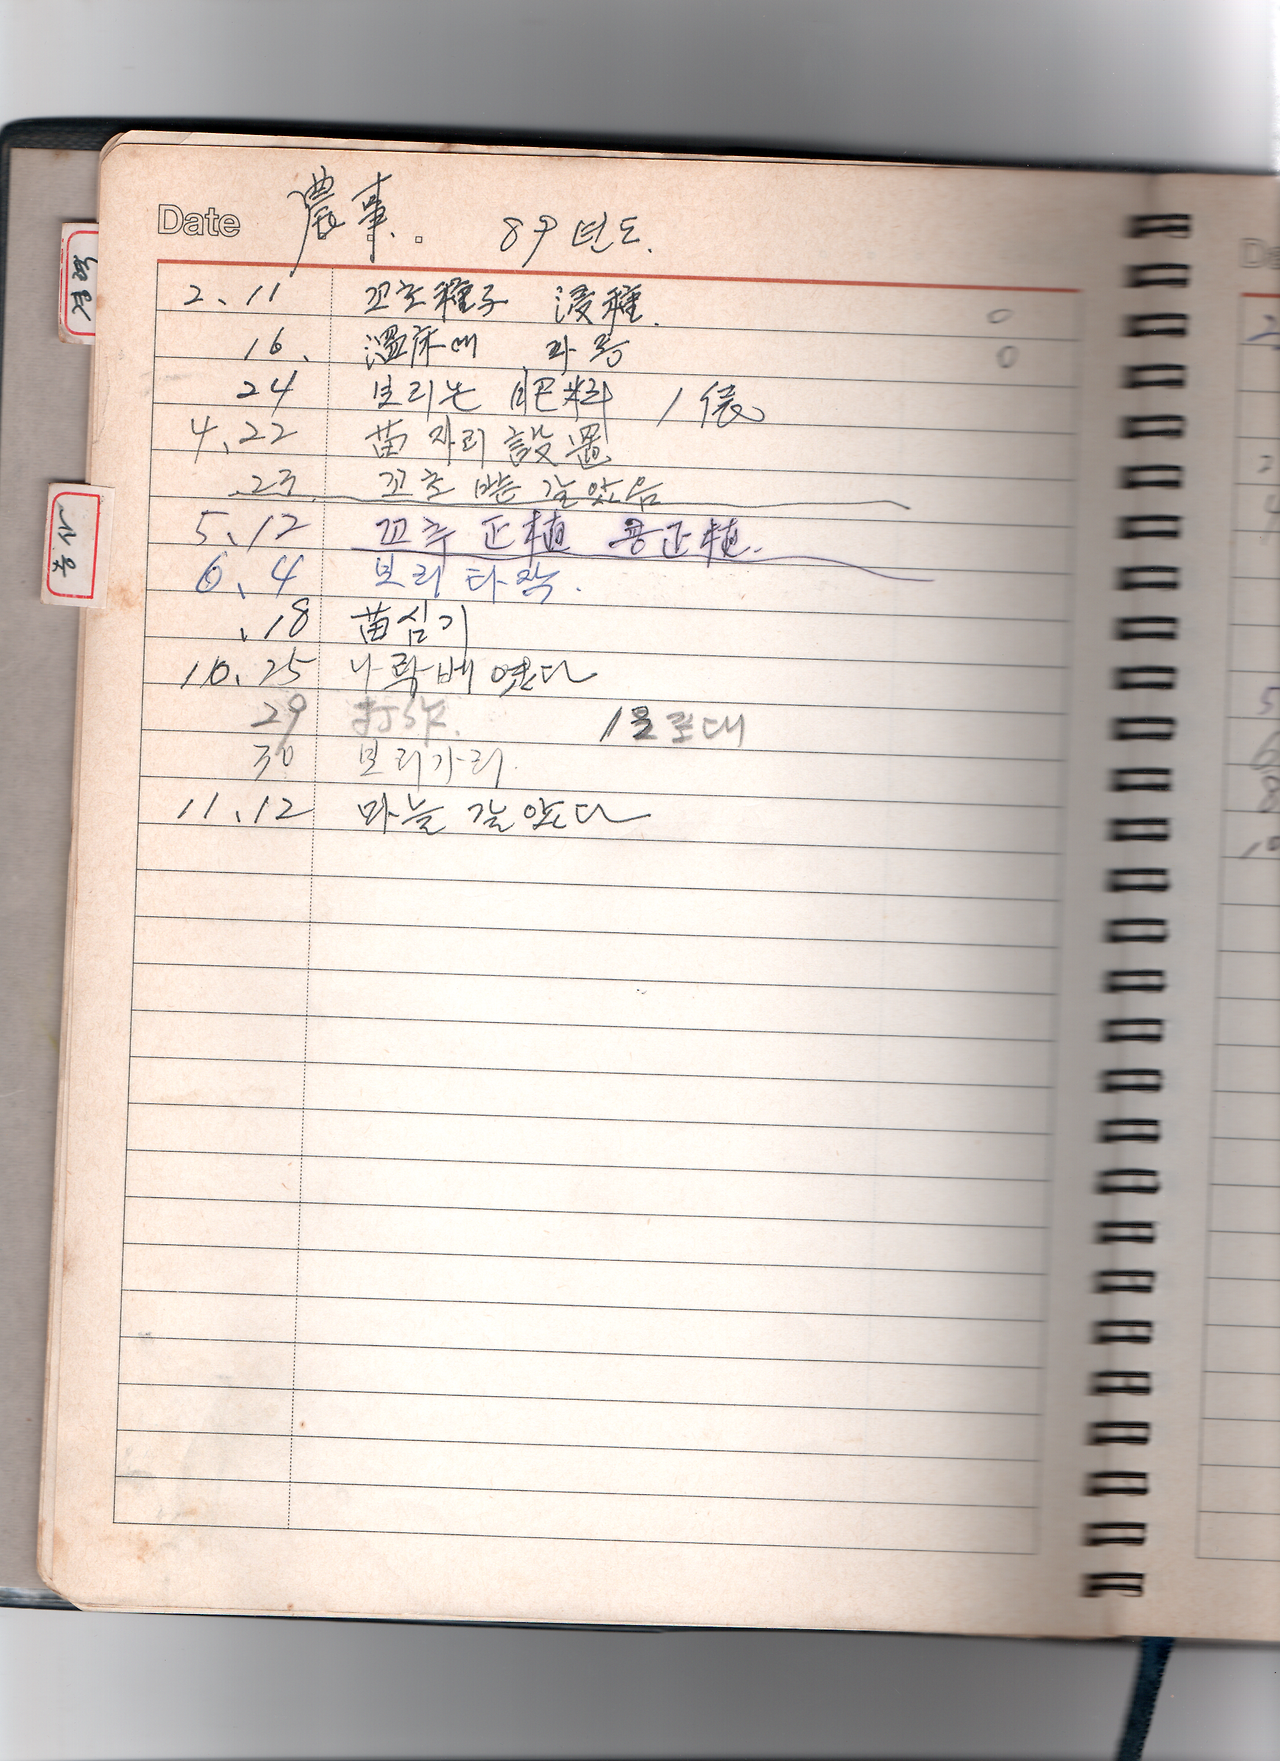 Date 農事. 89년도.
2. 11 꼬초種子 浸種. 0
16. 溫床에 파종 0
24 보리논 肥料 1俵
4. 22 苗자리 設置
23. 꼬초 밭 갈았음
5. 12 꼬추 正植 콩正植.
6. 4 보리타작.
. 18 苗심기
10. 25 나락베엿다
29 打作. 포대
30 보리가리.
11. 12 마늘 갈았다